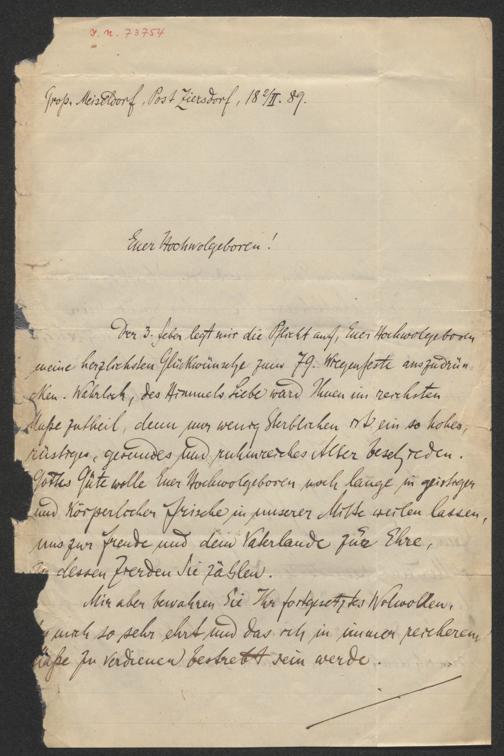 I. N. 73754
Groß-Meiseldorf, Post Ziersdorf, 18 2/II. 89.
Euer Hochwolgeboren!
Der 3. Feber legt mir die Pflicht auf, Euer Hochwolgeboren
meine herzlichsten Glückwünsche zum 79. Wiegenfeste auszudrü-
cken. Wahrlich, des Himmels Liebe ward Ihnen im reichsten
Maße zutheil, denn nur wenig Sterblichen ist ein so hohes,
rüstiges, gesundes und ruhmreiches Alter beschieden.
Gottes Güte wolle Euer Hochwolgeboren noch lange in geistiger
und körperlicher Frische in unserer Mitte weilen lassen,
uns zur Freude und dem Vaterlande zur Ehre,
zu dessen Zierden Sie zählen.
Mir aber bewahren Sie Ihr fortgesetztes Wolwollen,
mich so sehr ehrt und das ich in immer reicherem
Maße zu verdienen bestrebt sein werde.